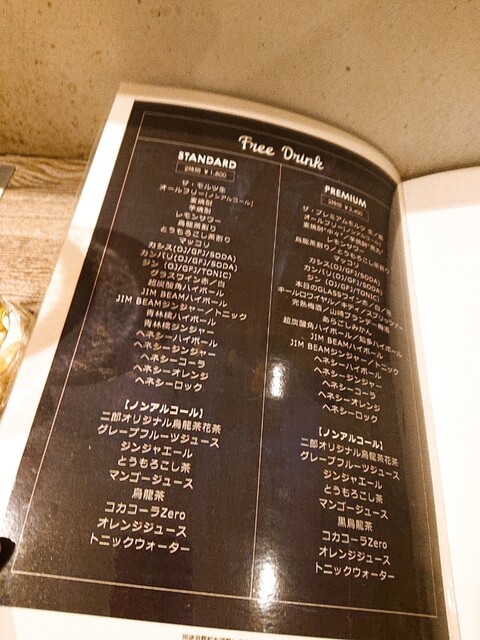 Free Drink
STANDARD
2時間 ¥1,800
ザ・モルツ生
オールフリー[ノンアルコール]
麦焼酎
芋焼酎
レモンサワー
烏龍茶割り
とうもろこし茶割り
マッコリ
カシス(OJ/GFJ/SODA)
カンパリ(OJ/GFJ/SODA)
ジン (OJ/GFJ/TONIC)
グラスワイン赤/白
超炭酸角ハイボール
JIM BEAMハイボール
JIM BEAMジンジャー/トニック
青林檎ハイボール
青林檎ジンジャー
ヘネシーハイボール
ヘネシージンジャー
ヘネシーコーラ
ヘネシーオレンジ
ヘネシーロック
【ノンアルコール】
二郎オリジナル烏龍茶花茶
グレープフルーツジュース
ジンジャエール
とうもろこし茶
マンゴージュース
烏龍茶
コカコーラZero
オレンジジュース
トニックウォーター
PREMIUM
2時間 ¥2,400
ザ・プレミアムモルツ 生
オールフリー[ノンアルコール]
レモンサワー
烏龍茶割り
とうもろこし茶割り
マッコリ
カシス(OJ/GFJ/SODA)
カンパリ(OJ/GFJ/SODA)
ジン (OJ/GFJ/TONIC)
本日のGLASSワイン赤/白/泡
キールロワイヤル/キティ/スプリッツァー
完熟梅酒/山崎ブランデー梅酒
あらごしみかん
超炭酸角ハイボール/知多ハイボール
JIM BEAMハイボール
JIM BEAMジンジャー/トニック
ヘネシーハイボール
ヘネシージンジャー
ヘネシーコーラ
ヘネシーオレンジ
ヘネシーロック
【ノンアルコール】
二郎オリジナル烏龍茶花茶
グレープフルーツジュース
ジンジャエール
とうもろこし茶
マンゴージュース
黒烏龍茶
コカコーラZero
オレンジジュース
トニックウォーター